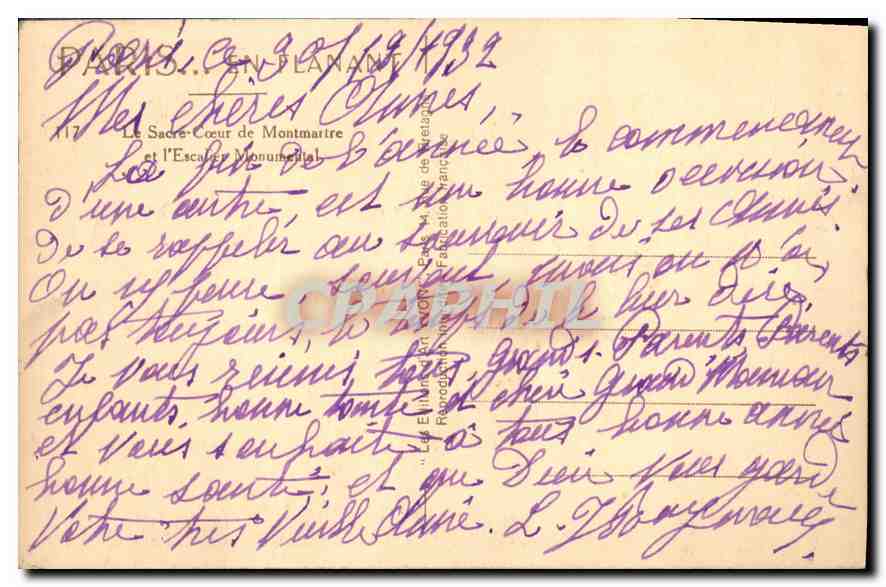 PARIS... EN FLANANT
Paris, ce 30/12/1932
Mes chères Amies,
117 Le Sacré-Cœur de Montmartre
et l'Escalier Monumental
La fin de l'année, le commencement
d'une autre, est une bonne occasion
de se rappeler au souvenir de ses Amis.
On y pense, souvent, mais on n'a
pas toujours, le temps de le leur dire,
Je vous réunis tous, grands-Parents Parents
enfants, bonne tante et chère grand'Maman
et vous souhaite à tous bonne année
bonne santé, et que Dieu vous garde
Votre très Vieille Amie. L.
"Les Editions d'Art YVON" - Paris, 14, Rue de Bretagne
Fabrication française
CPAPHIL